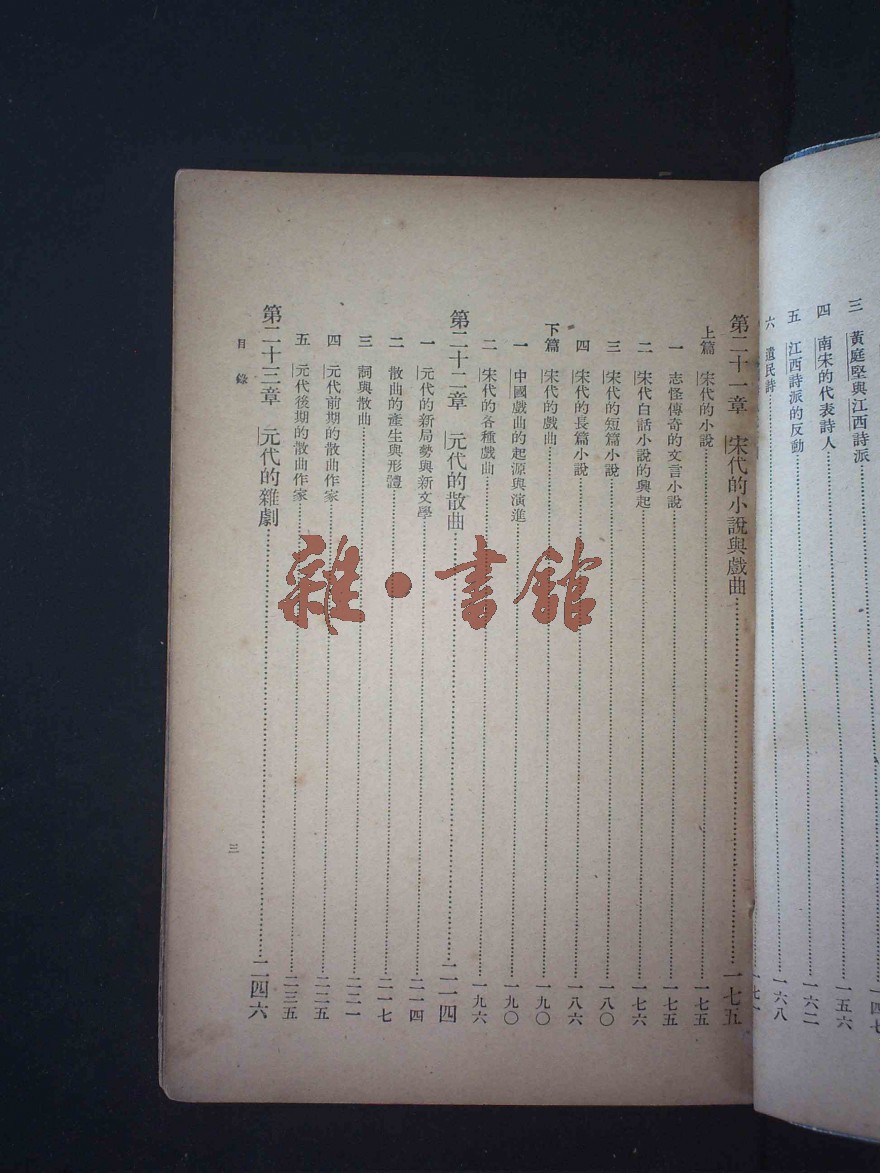 三　黃庭堅與江西詩派……一四七
四　南宋的代表詩人……一五六
五　江西詩派的反動……一六二
六　遺民詩……一六八
一七一
第二十一章　宋代的小說與戲曲……一七五
上篇　宋代的小說……一七五
一　志怪傳奇的文言小說……一七五
二　宋代白話小說的興起……一七六
三　宋代的短篇小說……一八〇
四　宋代的長篇小說……一八六
下篇　宋代的戲曲……一九〇
一　中國戲曲的起源與演進……一九〇
二　宋代的各種戲曲……一九六
第二十二章　元代的散曲……二一四
一　元代的新局勢與新文學……二一四
二　散曲的產生與形體……二一七
三　詞與散曲……二二一
四　元代前期的散曲作家……二二五
五　元代後期的散曲作家……二三五
第二十三章　元代的雜劇……二四六
目錄
三
雜·書館